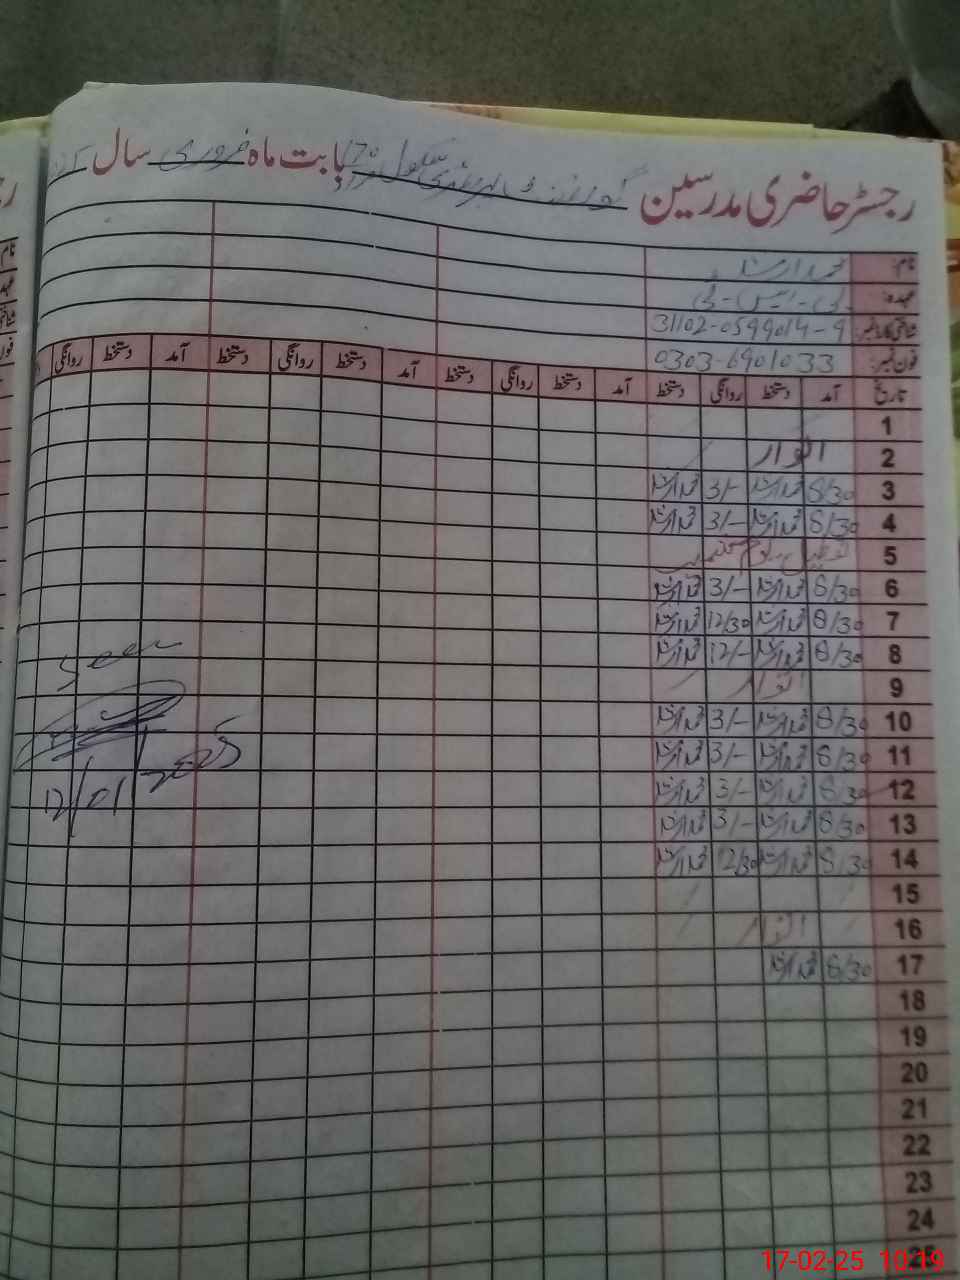 رجسٹر حاضری مدرسین گورنمنٹ پرائمری سکول بابت ماہ فروری سال
نام: محمد ارشد
عہدہ: پی-ایس-ٹی
شناختی کارڈ نمبر: 31102-0599014-9
فون نمبر: 0303-6901033
تاریخ آمد دستخط روانگی دستخط آمد دستخط روانگی دستخط آمد دستخط روانگی دستخط آمد دستخط روانگی
1
2 اتوار
3 8/30 محمد ارشد 3/- محمد ارشد
4 8/30 محمد ارشد 3/- محمد ارشد
5 تعطیل یوم کشمیر
6 8/30 محمد ارشد 3/- محمد ارشد
7 8/30 محمد ارشد 12/30 محمد ارشد
8 8/30 محمد ارشد 12/- محمد ارشد
Seen
9 اتوار
10 8/30 محمد ارشد 3/- محمد ارشد
11 8/30 محمد ارشد 3/- محمد ارشد
12/01/2025
12 8/30 محمد ارشد 3/- محمد ارشد
13 8/30 محمد ارشد 3/- محمد ارشد
14 8/30 محمد ارشد 12/30 محمد ارشد
15
16 اتوار
17 8/30 محمد ارشد
18
19
20
21
22
23
24
25
17-02-25 10:19